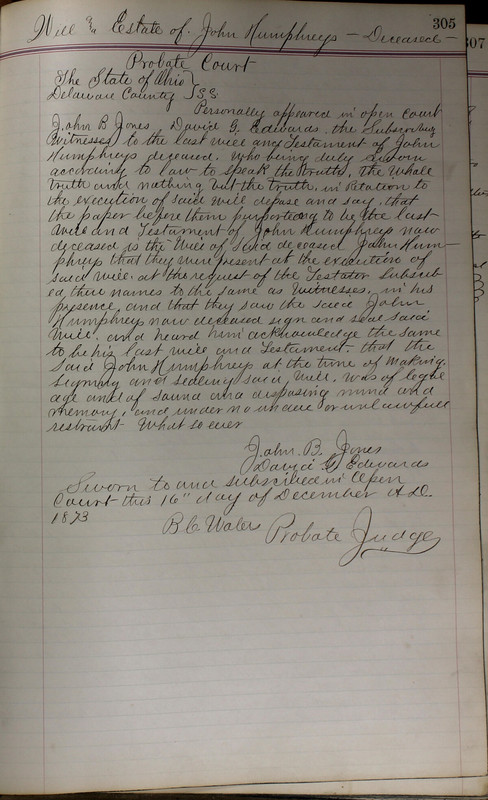 305
Will &c Estate of John Humphreys - Deceased -
307
Probate Court
The State of Ohio }
Delaware County } SS
Personally appeared in open Court
John B Jones David G. Edwards the Subscribing
Witnesses to the last will and Testament of John
Humphreys deceased. Who being duly sworn
according to law to speak the truth, the Whole
truth and nothing but the truth. in Relation to
the execution of said will depose and say, that
the paper before them purporting to be the last
Will and Testament of John Humphreys now
deceased is the Will of said deceased John Hum-
phreys that they were present at the execution of
said will. at the request of the Testator Subscrib-
ed their names to the same as Witnesses. in his
presence and that they saw the said John
Humphreys now deceased sign and seal said
Will. and heard him acknowledge the same
to be his last will and Testament. that the
Said John Humphreys at the time of making,
Signing and sealing said Will. was of legal
age and of sound and disposing mind and
memory, and under no undue or unlawfull
restraint What so ever
John. B. Jones
David G Edwards
Sworn to and subscribed in open
Court this 16" day of December A.D.
1873
B.C. Waters Probate Judge